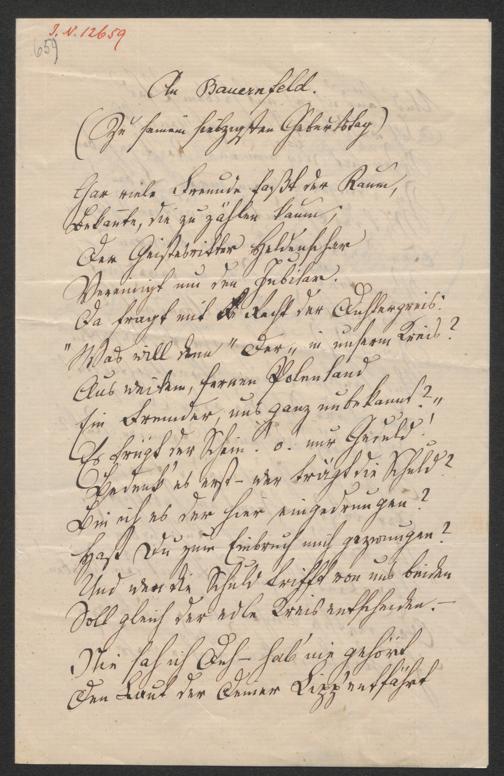 J. N. 12659
659
An Bauernfeld.
(Zu seinem siebzigsten Geburtstag)
Gar viele Freunde faßt der Raum,
Bekannte, die zu zählen kaum;
Der Geistesritter Heldenschar
Vereinigt um den Jubilar.
Da fragt mit Recht der Dichtergreis:
"Was will denn "Der" in unserm Kreis?
Aus weitem, fernen Polenland
Ein Fremder, uns ganz unbekannt?"
Es trügt der Schein. o. nur Geduld!
Bedenk' es erst – wer trägt die Schuld?
Bin ich es der hier eingedrungen?
Hast Du zum Einbruch mich gezwungen?
Und wen die Schuld trifft von uns beiden
Soll gleich der edle Kreis entscheiden. –
Nie sah ich Dich – hab' nie gehört
Den Laut der Deiner Lipp' entfährt